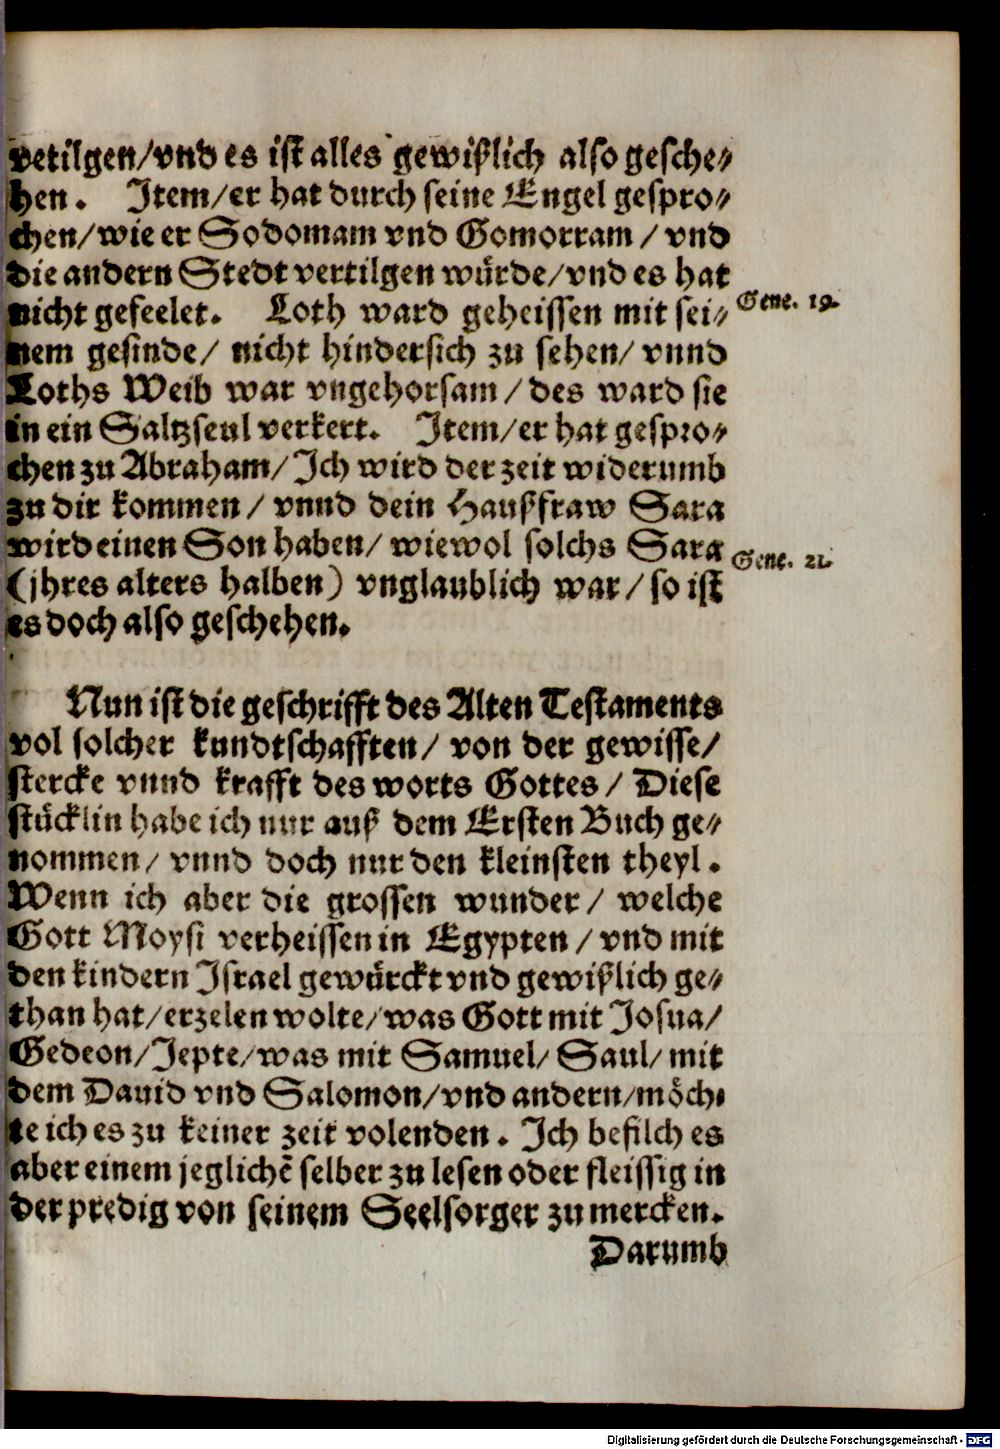 vetilgen/vnd es ist alles gewißlich also gesche⸗
hen. Item/er hat durch seine Engel gespro⸗
chen/wie er Sodomam vnd Gomorram / vnd
die andern Stedt vertilgen würde/vnd es hat
nicht gefeelet. Loth ward geheissen mit sei⸗
Gene. 19.
nem gesinde/ nicht hindersich zu sehen/ vnnd
Loths Weib war vngehorsam / des ward sie
in ein Saltzseul verkert. Item/er hat gespro⸗
chen zu Abraham/ Ich wird der zeit widerumb
zu dir kommen / vnnd dein Haußfraw Sara
wird einen Son haben/ wiewol solchs Sara
Gene. 21.
(jhres alters halben) vnglaublich war / so ist
es doch also geschehen.
Nun ist die geschrifft des Alten Testaments
vol solcher kundtschafften/ von der gewisse/
stercke vnnd krafft des worts Gottes / Diese
stücklin habe ich nur auß dem Ersten Buch ge⸗
nommen/ vnnd doch nur den kleinsten theyl.
Wenn ich aber die grossen wunder / welche
Gott Moysi verheissen in Egypten / vnd mit
den kindern Israel gewürckt vnd gewißlich ge⸗
than hat/erzelen wolte/was Gott mit Josua/
Gedeon/Jepte/was mit Samuel/ Saul/ mit
dem Dauid vnd Salomon/vnd andern/möch⸗
te ich es zu keiner zeit volenden. Ich befilch es
aber einem jeglichẽ selber zu lesen oder fleissig in
der predig von seinem Seelsorger zu mercken.
Darumb
Digitalisierung gefördert durch die Deutsche Forschungsgemeinschaft - DFG